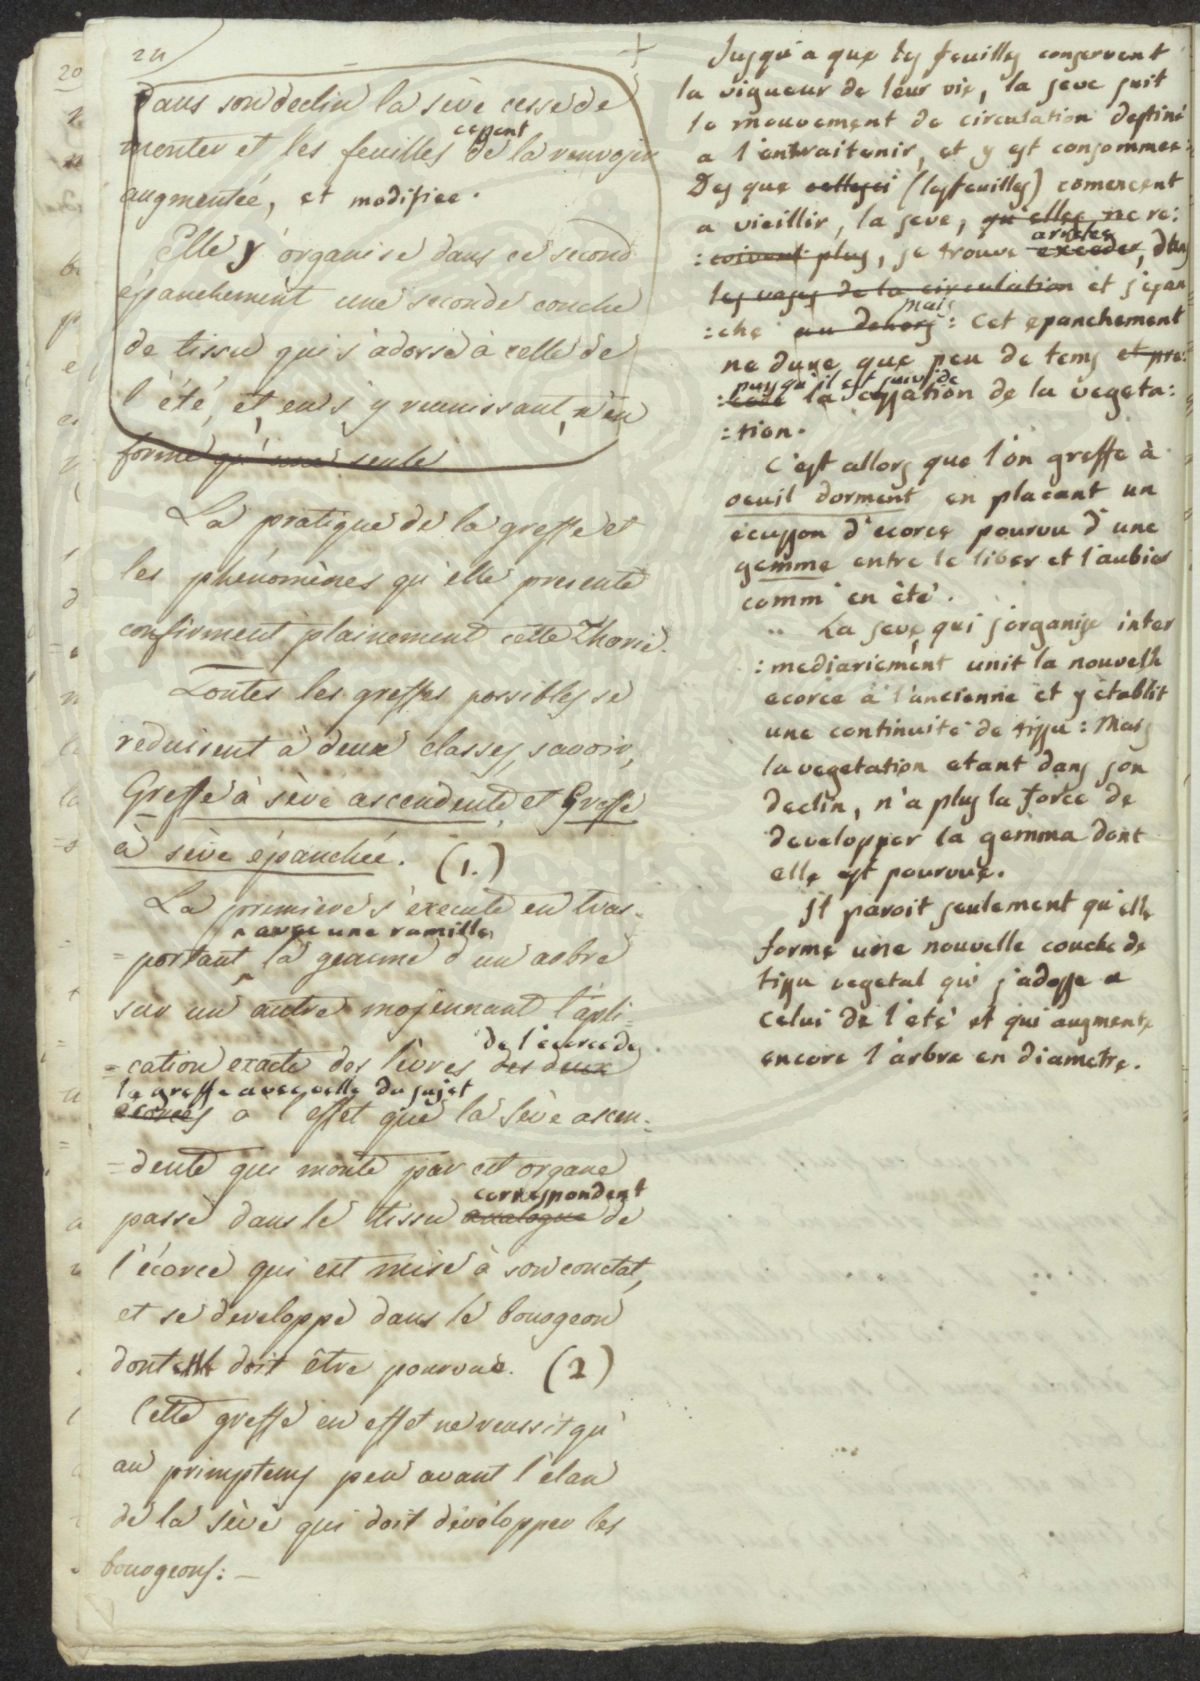 24
+
Dans son declin la sève cesse de
cessent
monter et les feuilles de la renvoyer
augmentée, et modifiée.
Elle s'organise dans ce second
épanchement une seconde couche
de tissu qui s'adosse à celle de
l'été, et en s'y reunissant, n'en
forme qu'une seule
La pratique de la greffe et
les phénomènes qu'elle presente
confirment plainement cette théorie.
Toutes les greffes possibles se
reduisent à deux classes, savoir,
Greffe à sève ascendente, et Greffe
à sève épanchée. (1.)
La premiere s'éxecute en tras-
avec une ramille
=portant la gemme d'un arbre
sur un autre moyennant l'apli-
de l'ecorce de
=cation exacte des lèvres des deux
la greffe avec celle du sujet
ecorces a l'effet que la sève ascen-
=dente qui monte par cet organe
correspondent
passe dans le tissu analogue de
l'écorce qui est mise à son contat,
et se developpe dans le bourgeon
dont elle doit être pourvue. (2)
Cette greffe en effet ne reussit qu'
au primptems peu avant l'élan
de la sève qui doit développer les
bourgeons: —
Jusqu'a que les feuilles conservent
la vigueur de leur vie, la seve suit
le mouvement de circulation destiné
a l'entraitenir, et y est consommee:
Des que cellesci (les feuilles) comencent
a vieillir, la seve, qu'elles ne re:
arretee
:coivent plus, se trouve excedee, dans
les vases de la circulation et s'epan
mais
:che au dehors: Cet epanchement
ne dure que peu de tems et pre:
puisqu'il est suivi de
:cede la cessation de la vegeta:
:tion.
C'est allors que l'on greffe à
oeuil dorment en placant un
ecusson d'ecorce pourvu d'une
gemme entre le liber et l'aubier
comm' en été.
La seve qui s'organise inter
:mediariement unit la nouvelle
ecorce à l'ancienne et y établit
une continuité de tissu: Mais
la vegetation etant dans son
declin, n'a plus la force de
developper la gemma dont
elle est pourvue.
Il paroit seulement qu'elle
forme une nouvelle couche de
tissu vegetal qui s'adosse a
celui de l'été et qui augmente
encore l'arbre en diametre.